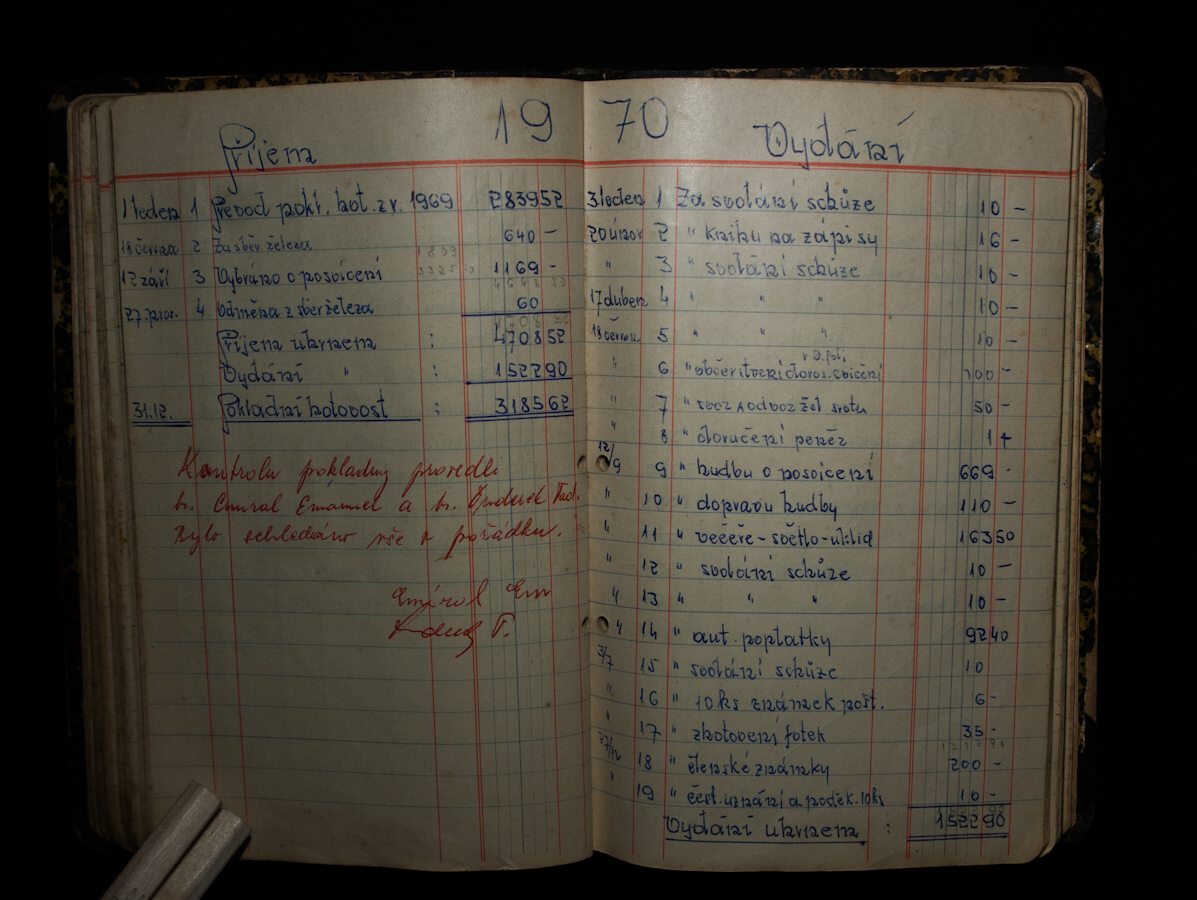 19 70
Příjem
1 leden 1 Převod pokl. hot. z r. 1969 283952
18 června 2 Za sběr železa 640 -
1809
12 září 3 Vybráno o posvícení 1169 -
4648 52
27. pros. 4 Odměna z sběr železa 60
4708 52
Příjem uhrnem : 470852
Vydání " : 152290
31.12. Pokladní hotovost : 318562
Kontrolu pokladny provedli
br. Emanuel a br.
Bylo schledáno vše v pořádku.
Em
T.
Vydání
3 leden 1 Za svolání schůze 10 -
20 únor 2 " knihu na zápisy 16 -
" 3 " svolání schůze 10 -
17 duben 4 " " " 10 -
18 červen 5 " " " 10 -
" 6 " občerstvení doros. cvičení 100 -
" 7 " svoz a odvoz žel šrotu 50 -
" 8 " doručení peněz 1
12/9 9 " hudbu o posvícení 669 -
" 10 " dopravu hudby 110 -
" 11 " večeře - světlo - uklid 16350
" 12 " svolání schůze 10 -
" 13 " " " 10 -
" 14 " aut. poplatky 9240
15 " svolání schůze 10
" 16 " 10 ks známek pošt. 6 -
" 17 " zhotovení fotek 35 -
1312 90
27/12 18 " členské známky 200 -
" 19 " čest. uznání a poděk. 10 ks 10 -
Vydání uhrnem : 152290